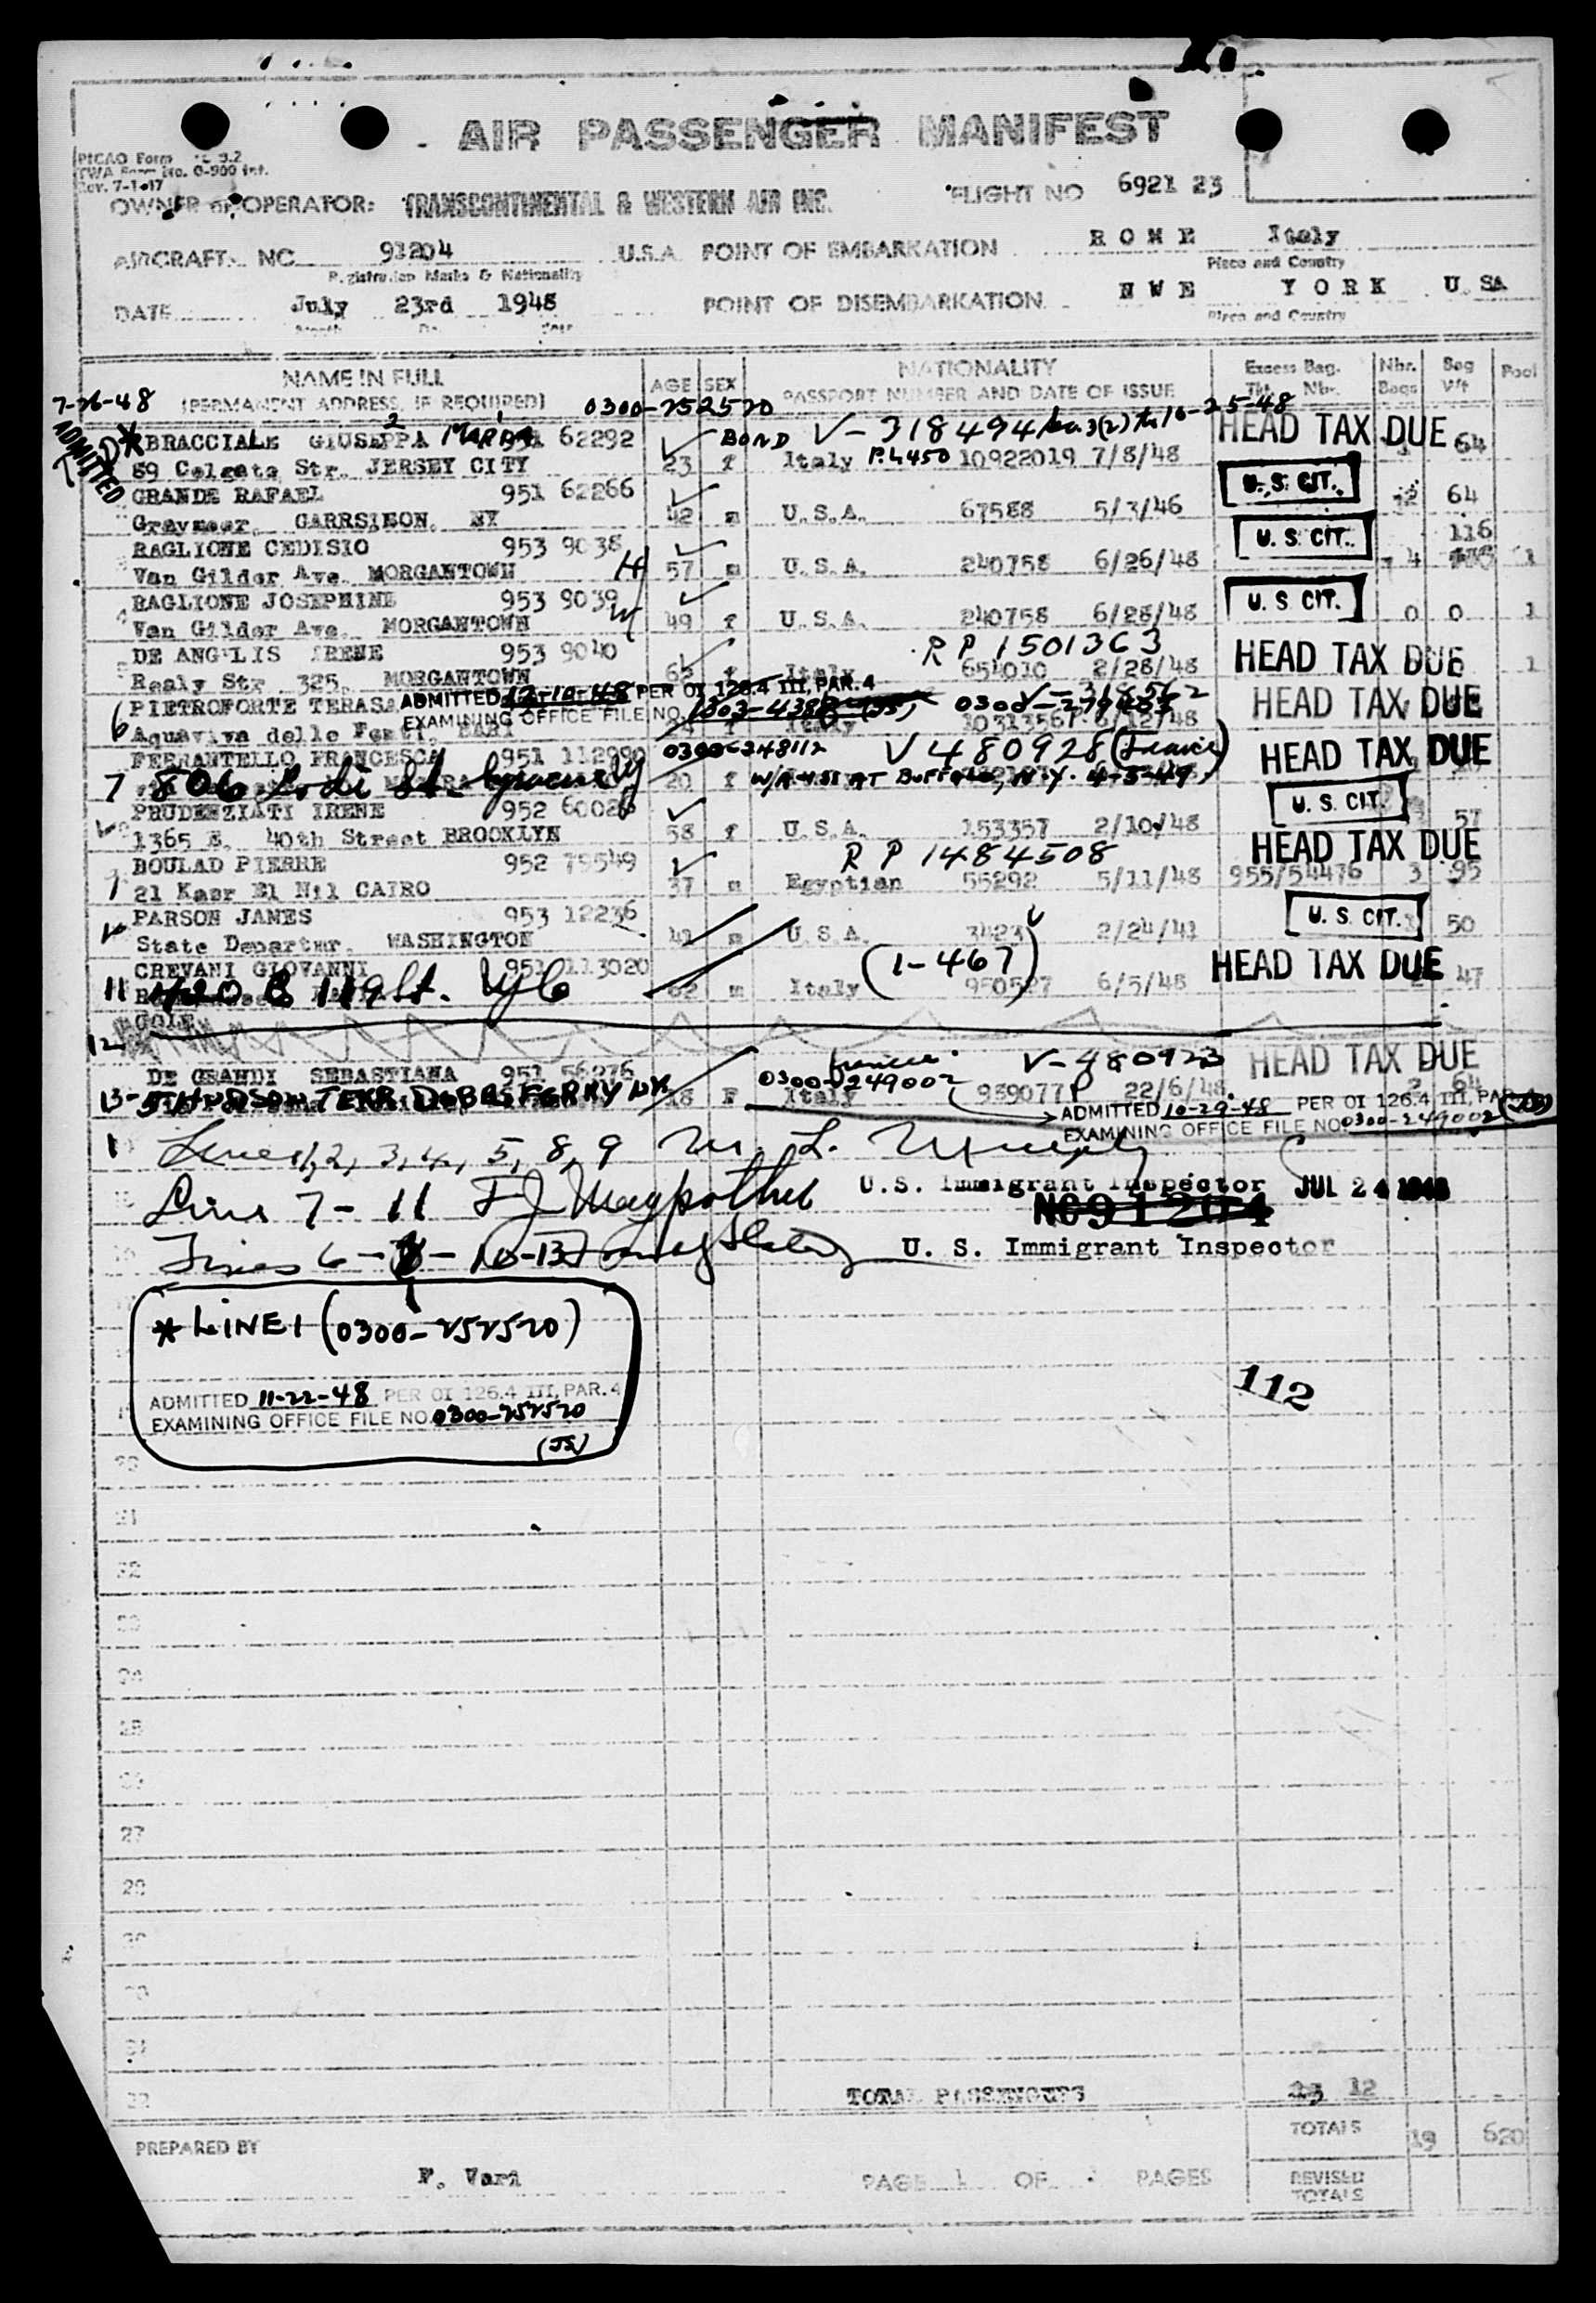 AIR PASSENGER MANIFEST
PICAO Form 9.2
TWA Form No. 0-900 Int.
Rev. 7-1-47
OWNER or OPERATOR: TRANSCONTINENTAL & WESTERN AIR INC. FLIGHT NO 6921 23
AIRCRAFT NC 91204 U.S.A. POINT OF EMBARKATION ROME Italy
Registration Marks & Nationality Place and Country
DATE July 23rd 1948 POINT OF DISEMBARKATION NWE YORK U.SA
Place and Country
NAME IN FULL AGE SEX NATIONALITY Excess Bag. Nbr. Bag Pool
(PERMANENT ADDRESS, IF REQUIRED) PASSPORT NUMBER AND DATE OF ISSUE Tkt. Nbr. Bags Wt
7-26-48 0300-252520
ADMITTED
* BRACCIALE GIUSEPPA MARIA 62292 BOND V-318494 3(2) 10-25-48 HEAD TAX DUE 64
89 Colgate Str. JERSEY CITY 23 f Italy P.L450 10922019 7/8/48
GRANDE RAFAEL 951 62266 U.S. CIT. 2 64
Graymoor, GARRSIEON, NY 42 m U.S.A. 67588 5/3/46
RAGLIONE CEDISIO 953 9038 U.S. CIT. 116
Van Gilder Ave. MORGANTOWN H 57 m U.S.A. 240758 6/26/48 4 1
RAGLIONE JOSEPHINE 953 9039 U.S. CIT.
Van Gilder Ave. MORGANTOWN W 49 f U.S.A. 240758 6/28/48 0 0 1
DE ANGELIS IRENE 953 9040 RP 1501363 HEAD TAX DUE
Realy Str. 325, MORGANTOWN 62 f Italy 654010 2/28/48 1
PIETROFORTE TERASA ADMITTED 12-10-48 PER OI 126.4 III, PAR. 4 V-318562 HEAD TAX DUE
6 Aquaviva delle Fonti, BARI EXAMINING OFFICE FILE NO. f Italy
FERRANTELLO FRANCESCA 951 112990 0300-248112 V480928 (France) HEAD TAX DUE
7 806 Lodi St. Syracuse NY 20 f W/A 4-55 AT BUFFALO, N.Y. 4-5-49
PRUDENZIATI IRENE 952 60026 U.S. CIT. 57
1365 E. 40th Street BROOKLYN 58 f U.S.A. 153357 2/10/48
BOULAD PIERRE 952 79549 RP 1484508 HEAD TAX DUE
9 21 Kasr El Nil CAIRO 37 m Egyptian 55292 5/11/48 955/54476 3 95
PARSON JAMES 953 12236 U.S. CIT. 50
State Departmr. WASHINGTON 41 m U.S.A. 3423 2/24/41
CREVANI GIOVANNI 951 113020 (1-467) HEAD TAX DUE 47
11 420 E 119 St. NYC 62 m Italy 950527 6/5/48
GOLE
12
DE GRANDI SEBASTIANA 951 56276 France V-480923 HEAD TAX DUE
13- 5 HUDSON TERR DOBBS FERRY NY 18 F 0300-249002 Italy 939077P 22/6/48 2 64
ADMITTED 10-29-48 PER OI 126.4 III, PAR. 4
EXAMINING OFFICE FILE NO. 0300-249002 (JS)
Lines 1, 2, 3, 4, 5, 8, 9 M. L. Murphy
U.S. Immigrant Inspector JUL 24 1948
Lines 7-11
NC91204
Lines 6 - 10-13
U. S. Immigrant Inspector
* LINE 1 (0300-252520)
ADMITTED 11-22-48 PER OI 126.4 III, PAR. 4
EXAMINING OFFICE FILE NO. 0300-252520
(JS)
112
20
21
22
23
24
25
26
27
28
29
30
31
32
TOTAL PASSENGERS 13 12
PREPARED BY TOTALS 19 620
F. Vari PAGE 1 OF PAGES REVISED TOTALS